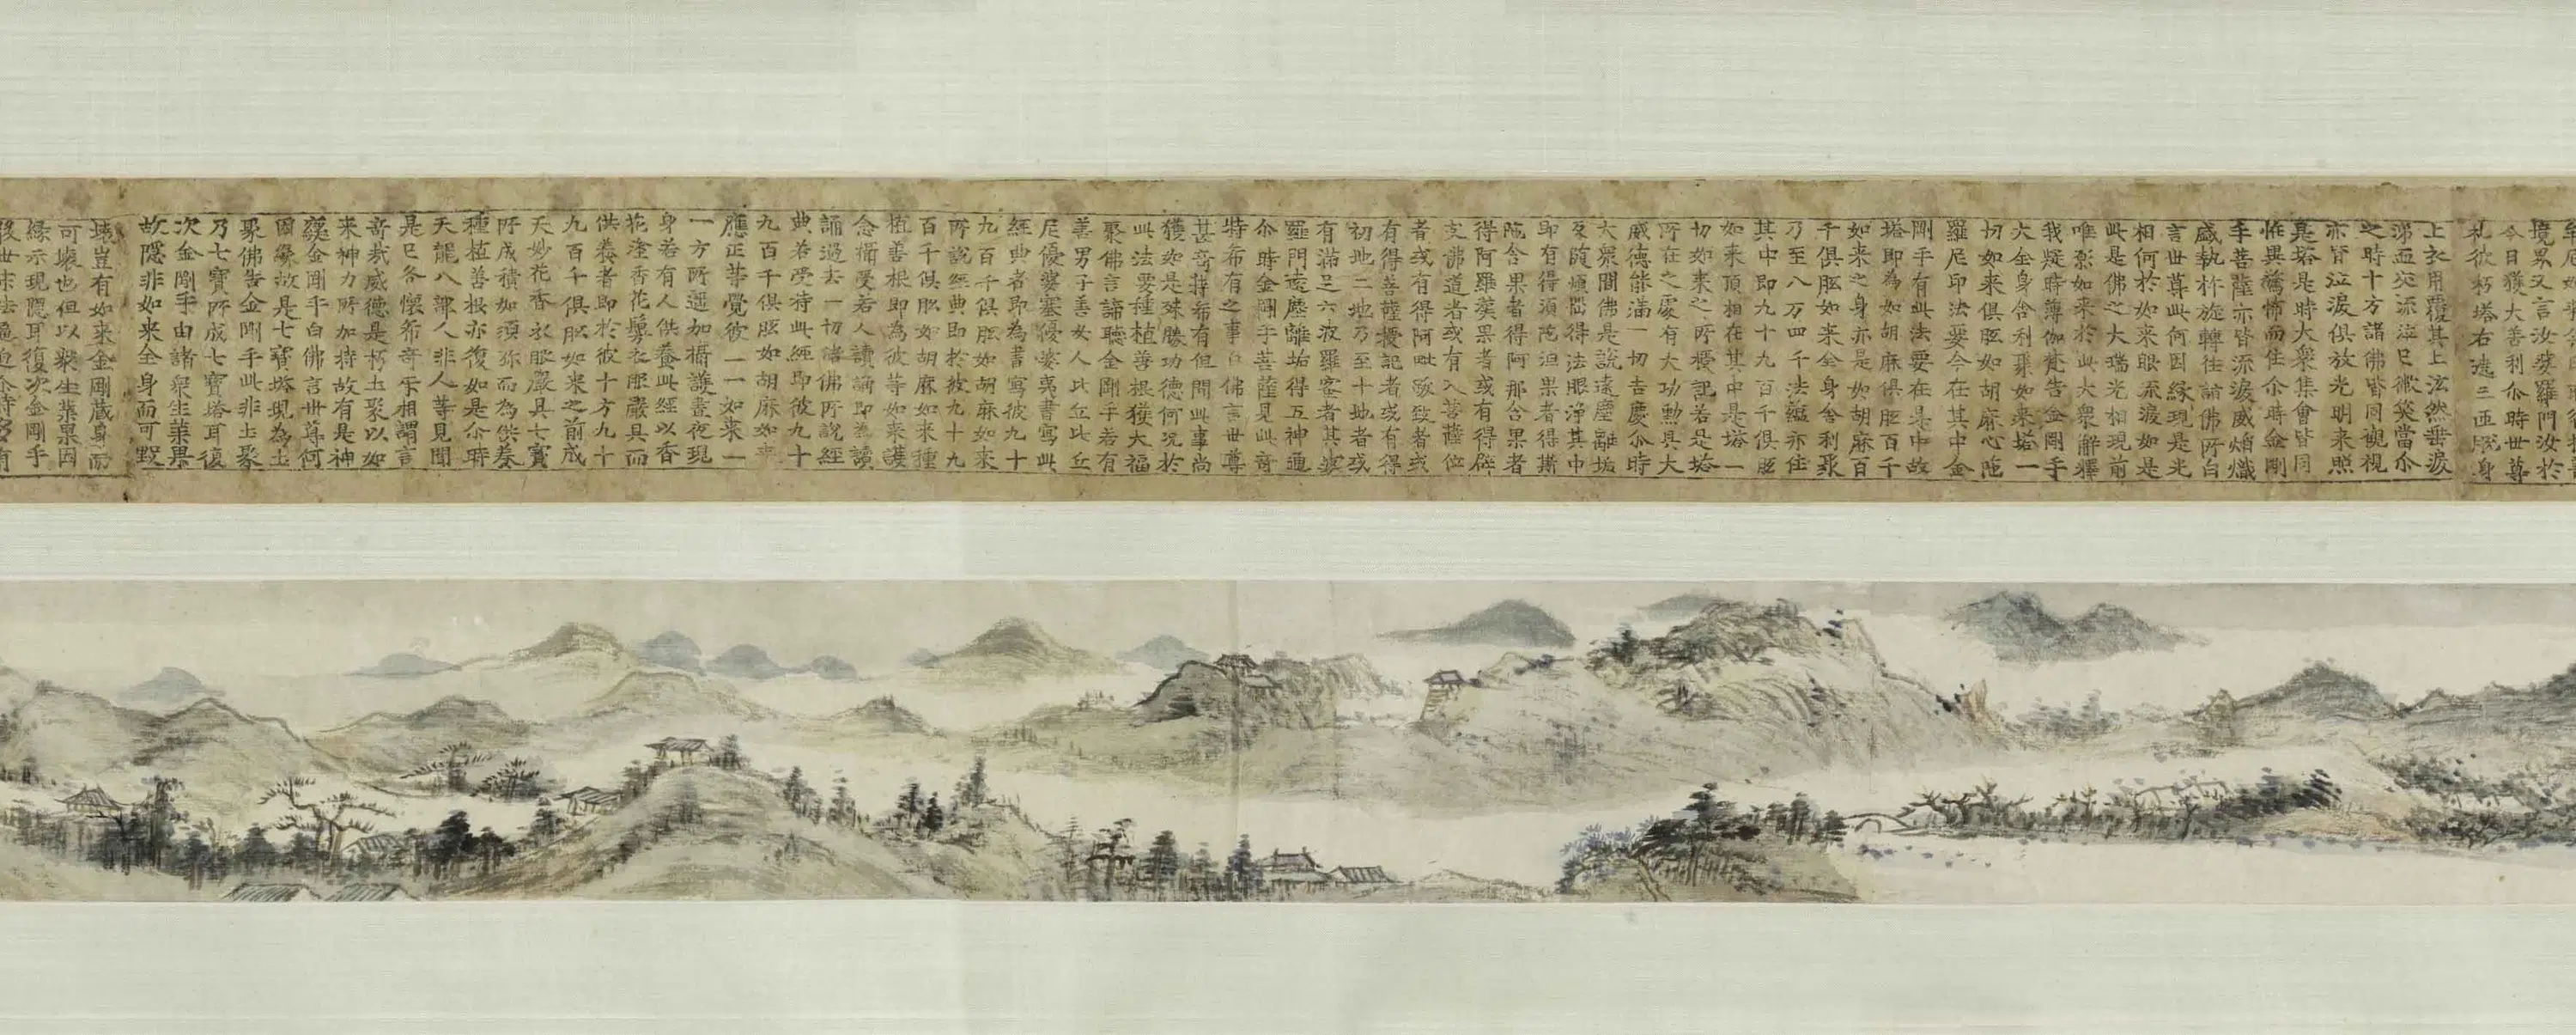 境界又言汝婆羅門汝於
今日獲大善利尒時世尊
礼彼朽塔右遶三匝脫身
上衣用覆其上泫然垂淚
涕血交流泣已微笑當尒
之時十方諸佛皆同觀視
亦皆泣淚俱放光明来照
是塔是時大衆集會皆同
恠異驚怖而住尒時金剛
手菩薩亦皆流淚威焰熾
盛執杵旋轉往詣佛所白
言世尊此何因緣現是光
相何於如来眼流淚如是
此是佛之大瑞光相現前
唯願如来於此大衆解釋
我疑時薄伽梵告金剛手
大全身舍利聚如来塔一
切如来俱胝如胡麻心陀
羅尼印法要今在其中金
剛手有此法要在是中故
塔即為如胡麻俱胝百千
如来之身亦是如胡麻百
千俱胝如来全身舍利聚
乃至八万四千法蘊亦住
其中即九十九百千俱胝
如来頂相在其中是塔一
切如来之所授記若是塔
所在之處有大功勳具大
威德能滿一切吉慶尒時
大衆聞佛是說遠塵離垢
及隨煩惱得法眼淨其中
即有得須陀洹果者得斯
陀含果者得阿那含果者
得阿羅漢果者或有得辟
支佛道者或有入菩薩位
者或有得阿毗跋致者或
有得菩薩授記者或有得
初地二地乃至十地者或
有滿足六波羅蜜者其婆
羅門遠塵離垢得五神通
尒時金剛手菩薩見此奇
特希有之事白佛言世尊
甚奇特希有但聞此事尚
獲如是殊勝功德何況於
此法要種植善根獲大福
聚佛言諦聽金剛手若有
善男子善女人比丘比丘
尼優婆塞優婆夷書寫此
經典者即為書寫彼九十
九百千俱胝如胡麻如来
所說經典即於彼九十九
百千俱胝如胡麻如来種
植善根即為彼等如来護
念攝受若人讀誦即為讀
誦過去一切諸佛所說經
典若受持此經即彼九十
九百千俱胝如胡麻如来
應正等覺彼一一如来一
一方所遥加攝護晝夜現
身若有人供養此經以香
花塗香花鬘衣服嚴具而
供養者即於彼十方九十
九百千俱胝如来之前成
天妙花香衣服嚴具七寶
所成積如須弥而為供養
種植善根亦復如是尒時
天龍八部人非人等見聞
是已各懷希奇互相謂言
奇哉威德是朽土聚以如
来神力所加持故有是神
變金剛手白佛言世尊何
因緣故是七寶塔現為土
聚佛告金剛手此非土聚
乃七寶所成七寶塔耳復
次金剛手由諸衆生業果
故隱非如来全身而可毀
壞豈有如来金剛蔵身而
可壞也但以衆生業果因
緣示現隱耳復次金剛手
後世末法逼迫尒時多有